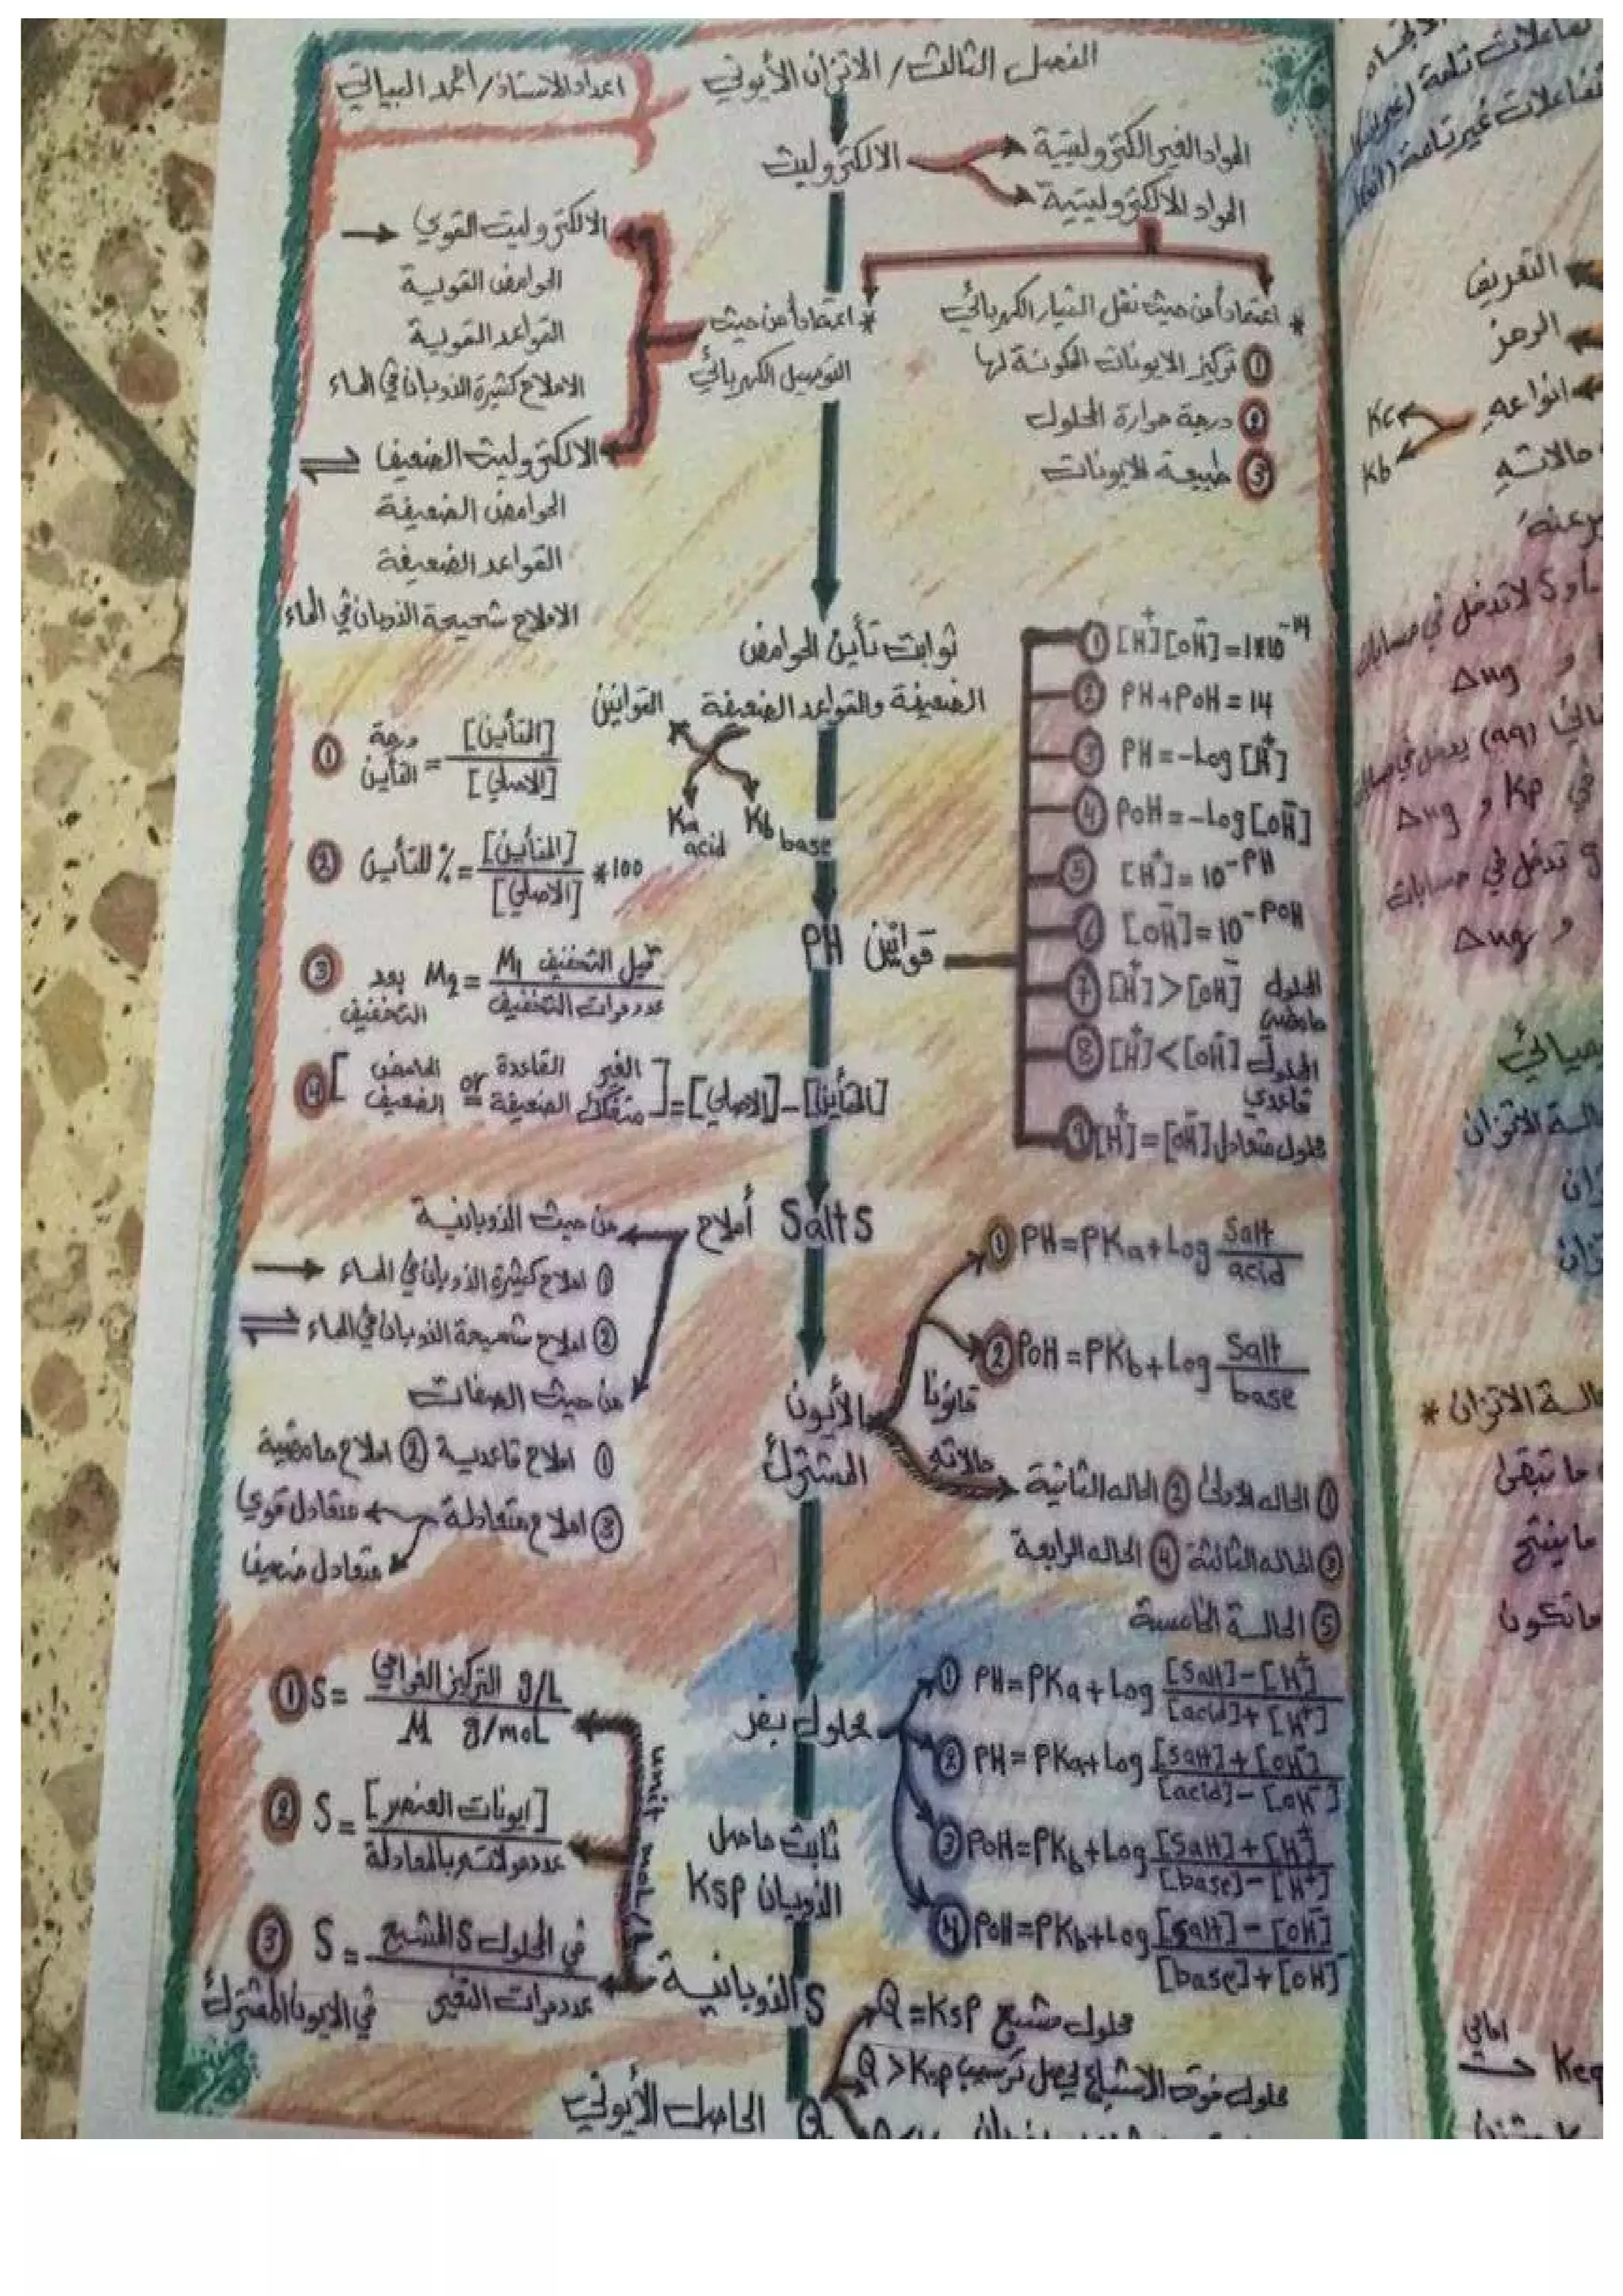 الفصل الثالث / الاتزان الأيوني
اعداد الاستاذ / احمد البياتي
الالكتروليت
المواد الغير الكتروليتية
المواد الالكتروليتية
* اعتماداً من حيث نقل التيار الكهربائي
① تركيز الايونات المكونة لها
② درجة حرارة المحلول
③ طبيعة الايونات
* اعتماداً من حيث
التوصيل الكهربائي
الالكتروليت القوي →
الحوامض القوية
القواعد القوية
الاملاح كثيرة الذوبان في الماء
الالكتروليت الضعيف ⇌
الحوامض الضعيفة
القواعد الضعيفة
الاملاح شحيحة الذوبان في الماء
ثوابت تأين الحوامض
الضعيفة والقواعد الضعيفة
القوانين
Ka acid
Kb base
① درجة التأين = [المتأين] / [الاصلي]
② %للتأين = [المتأين] / [الاصلي] *100
③ بعد التخفيف M2 = M1 قبل التخفيف / عدد مرات التخفيف
④ [الحامض الضعيف or القاعدة الضعيفة الغير متفكك] = [الاصلي] - [المتأين]
قوانين PH
① [H⁺][OH⁻]=1*10⁻¹⁴
② PH+POH=14
③ PH=-Log[H⁺]
④ POH=-Log[OH⁻]
⑤ [H⁺]=10⁻ᴾᴴ
⑥ [OH⁻]=10⁻ᴾᴼᴴ
⑦ [H⁺]>[OH⁻] المحلول حامضي
⑧ [H⁺]<[OH⁻] المحلول قاعدي
⑨ [H⁺]=[OH⁻] محلول متعادل
Salts أملاح
من حيث الذوبانية
① املاح كثيرة الذوبان في الماء →
② املاح شحيحة الذوبان في الماء ⇌
من حيث الصفات
① املاح قاعدية ② املاح حامضية
③ املاح متعادلة
متعادل قوي
متعادل ضعيف
الأيون
المشترك
قانونا
① PH=PKa+Log Salt / acid
② POH=PKb+Log Salt / base
حالاته
① الحاله الاولى ② الحاله الثانية
③ الحاله الثالثة ④ الحاله الرابعة
⑤ الحالة الخامسة
محلول بفر
① PH=PKa+Log [Salt]-[H⁺] / [acid]+[H⁺]
② PH=PKa+Log [Salt]+[OH⁻] / [acid]-[OH⁻]
③ POH=PKb+Log [Salt]+[H⁺] / [base]-[H⁺]
④ POH=PKb+Log [Salt]-[OH⁻] / [base]+[OH⁻]
ثابت حاصل
الذوبان Ksp
الذوبانية S
unit mol/L
① S= التركيز الغرامي g/L / M g/mol
② S= [ايونات العنصر] / عدد مولاته بالمعادلة
③ S= في المحلول S المشبع / عدد مرات التغير
في الايون المشترك
الحاصل الأيوني Q
Q=Ksp محلول مشبع
Q>Ksp محلول فوق الاشباع يحصل ترسيب
تفاعلات غير تامة
التعريف
الرمز
انواعه
Kc
Kb
حالاته
لا تدخل في حسابات
Δng
Δng و Kp في
تدخل في حسابات
Δng و
حالة الاتزان *
ما تبقى
ما ينتج
ماتكون
امامي
Keq